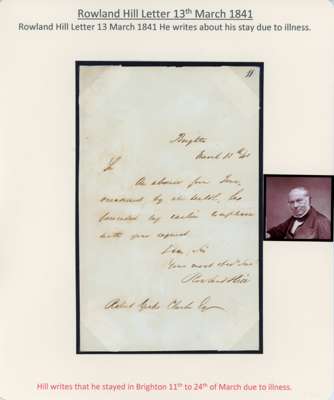 Rowland Hill Letter 13th March 1841
Rowland Hill Letter 13 March 1841 He writes about his stay due to illness.
11
Brighton
March 13th /41
Sir
An absence from Town,
occasioned by ill health, has
prevented my earlier compliance
with your request
I am, Sir
Your most obedt Servt
Rowland Hill
Robert Clarke Esq
Hill writes that he stayed in Brighton 11th to 24th of March due to illness.